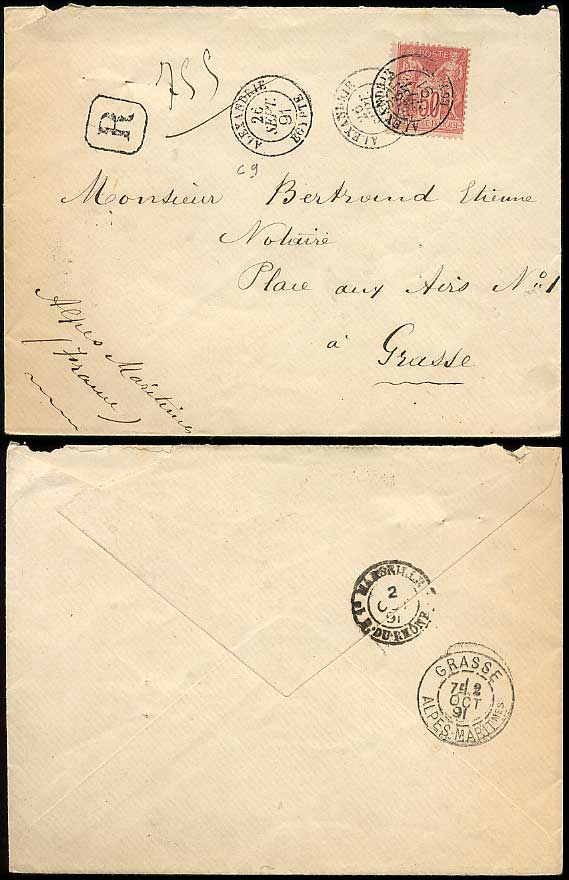 755
R
ALEXANDRIE
26
SEPT.
91
EGYPTE
ALEXANDRIE
ALEXANDRIE
POSTE
50
69
Monsieur Bertrand Etienne
Notaire
Place aux Airs No. 1
à Grasse
Alpes Maritimes
(France)
MARSEILLE
2
OCT
91
B. DU-RHÔNE
GRASSE
2
OCT
91
ALPES-MARITIMES